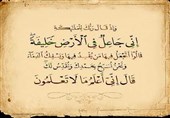 وَإِذْ قَالَ رَبُّكَ لِلْمَلَائِكَةِ
إِنِّي جَاعِلٌ فِي الْأَرْضِ خَلِيفَةً
قَالُوا أَتَجْعَلُ فِيهَا مَنْ يُفْسِدُ فِيهَا وَيَسْفِكُ الدِّمَاءَ
وَنَحْنُ نُسَبِّحُ بِحَمْدِكَ وَنُقَدِّسُ لَكَ
قَالَ إِنِّي أَعْلَمُ مَا لَا تَعْلَمُونَ